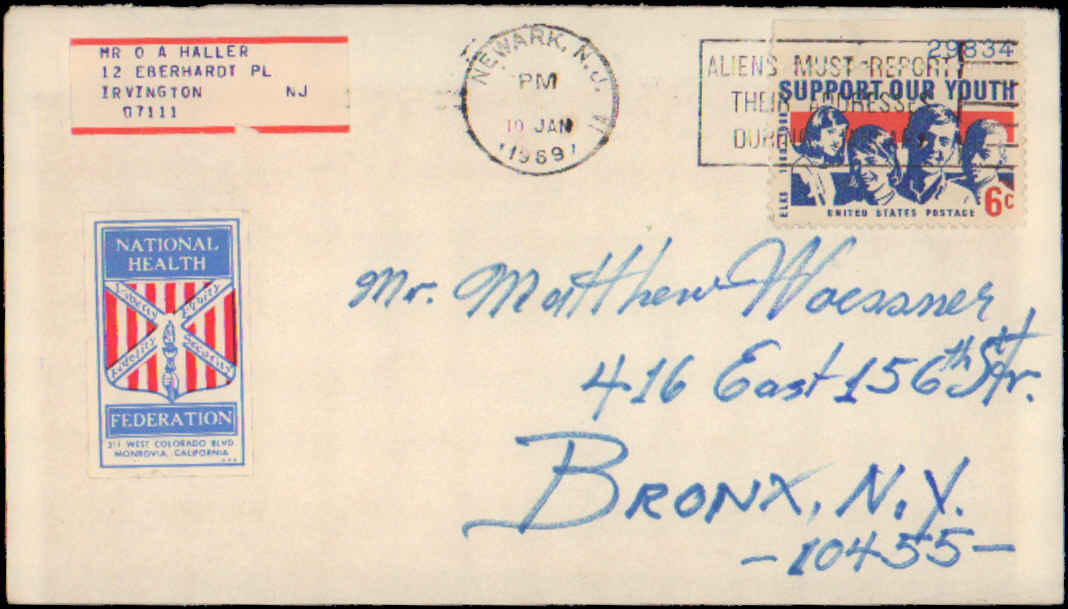 MR O A HALLER
12 EBERHARDT PL
IRVINGTON NJ
07111
NEWARK, N.J.
PM
10 JAN
1969
ALIENS MUST REPORT
THEIR ADDRESSES
DURING
29834
SUPPORT OUR YOUTH
ELKS 1868-1968
6c
UNITED STATES POSTAGE
NATIONAL
HEALTH
Equity
Fidelity
FEDERATION
211 WEST COLORADO BLVD.
MONROVIA, CALIFORNIA
Mr. Matthew Woessner
416 East 156th Str.
BRONX, N.Y.
-10455-